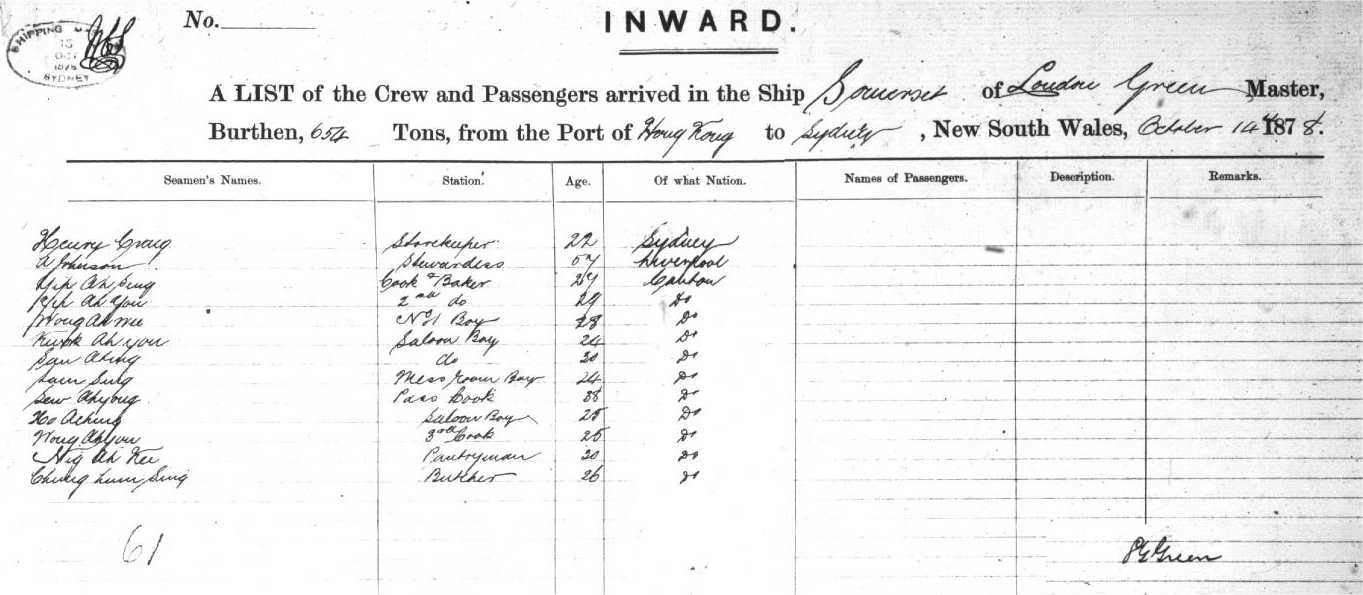 SHIPPING M
15
OCT
1878
SYDNEY
No.
INWARD.
A LIST of the Crew and Passengers arrived in the Ship Somerset of London Green Master,
Burthen, 654 Tons, from the Port of Hong Kong to Sydney, New South Wales, October 14th 1878.
Seamen's Names. Station. Age. Of what Nation. Names of Passengers. Description. Remarks.
Henry Craig Storekeeper 22 Sydney
A Johnson Stewardess 57 Liverpool
Yip Ah Sing Cook & Baker 27 Canton
Yip Ah You 2nd do 29 Do
Wong Ah Wee No 1 Boy 28 Do
Kwok Ah You Saloon Boy 24 Do
San Ahing do 30 Do
Sam Sing Mess room Boy 24 Do
Sew Ahyong Pass Cook 38 Do
Ho Aching Saloon Boy 25 Do
Wong Ah You 3rd Cook 25 Do
Nig Ah Kee Pantryman 20 Do
Chung Lum Sing Butcher 26 Do
61
Green